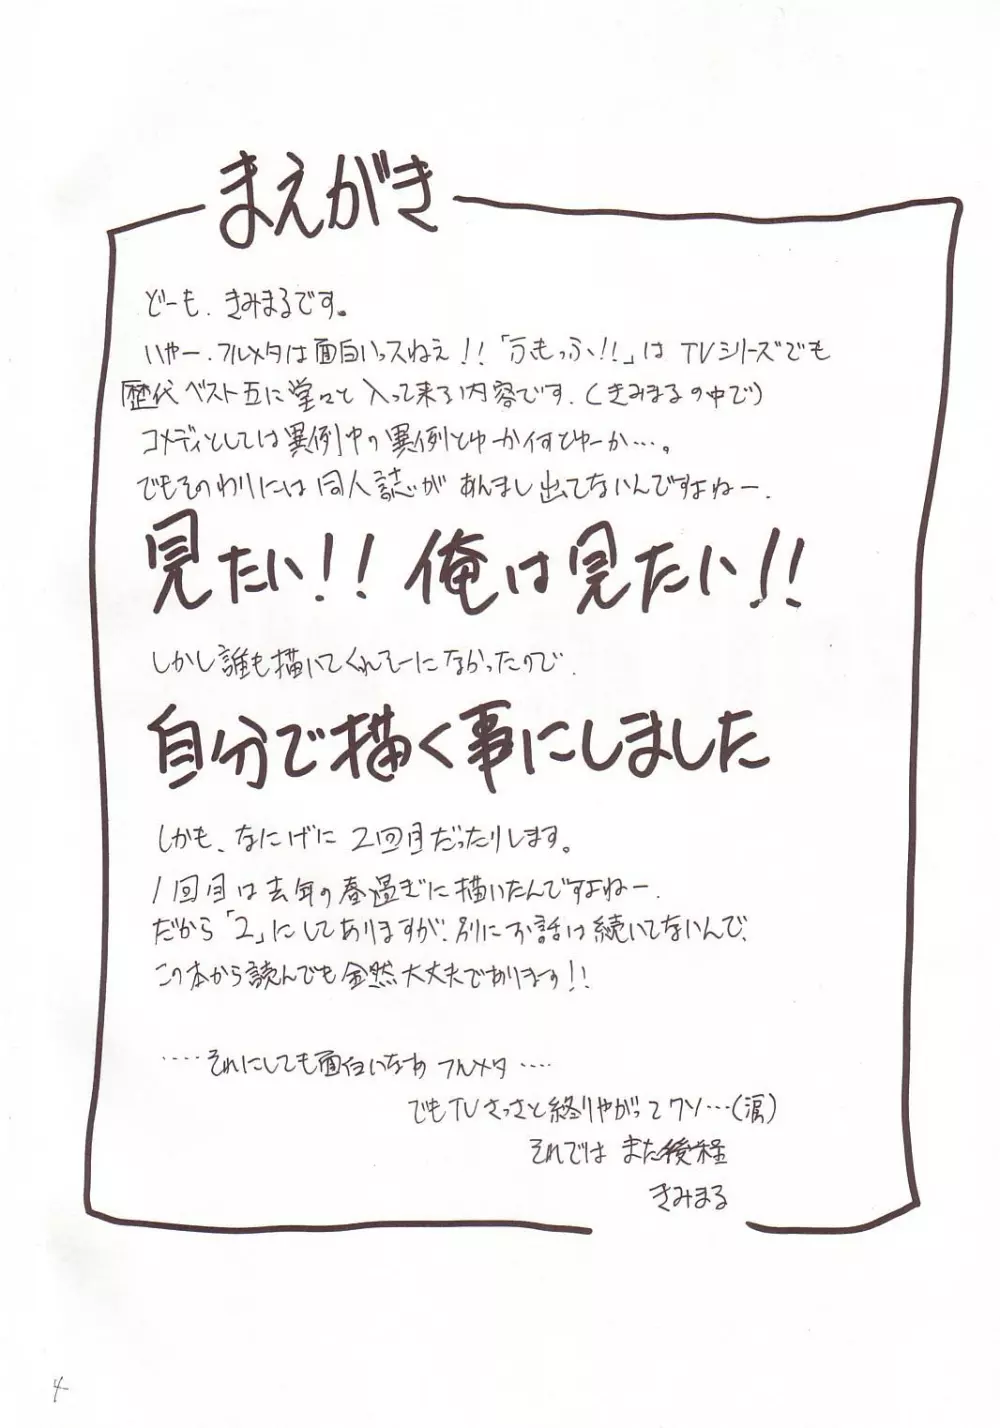 まえがき
どーも、きみまるです。
いやー、フルメタは面白いっスねえ!!「ふもっふ!!」は TVシリーズでも
歴代ベスト五に堂々と入って来る内容です。(きみまるの中で)
コメディとしては異例中の異例とゆーか何とゆーか…。
でもそのわりには同人誌があんまし出てないんですよねー。
見たい!! 俺は見たい!!
しかし誰も描いてくれそーになかったので、
自分で描く事にしました
しかも、なにげに2回目だったりします。
1回目は去年の春過ぎに描いたんですよねー。
だから「2」にしてありますが、別にお話は続いてないんで、
この本から読んでも全然大丈夫であります!!
……それにしても面白いなあ フルメタ……
でもTVさっさと終りやがってクソ…(涙)
それでは また後程
きみまる
4